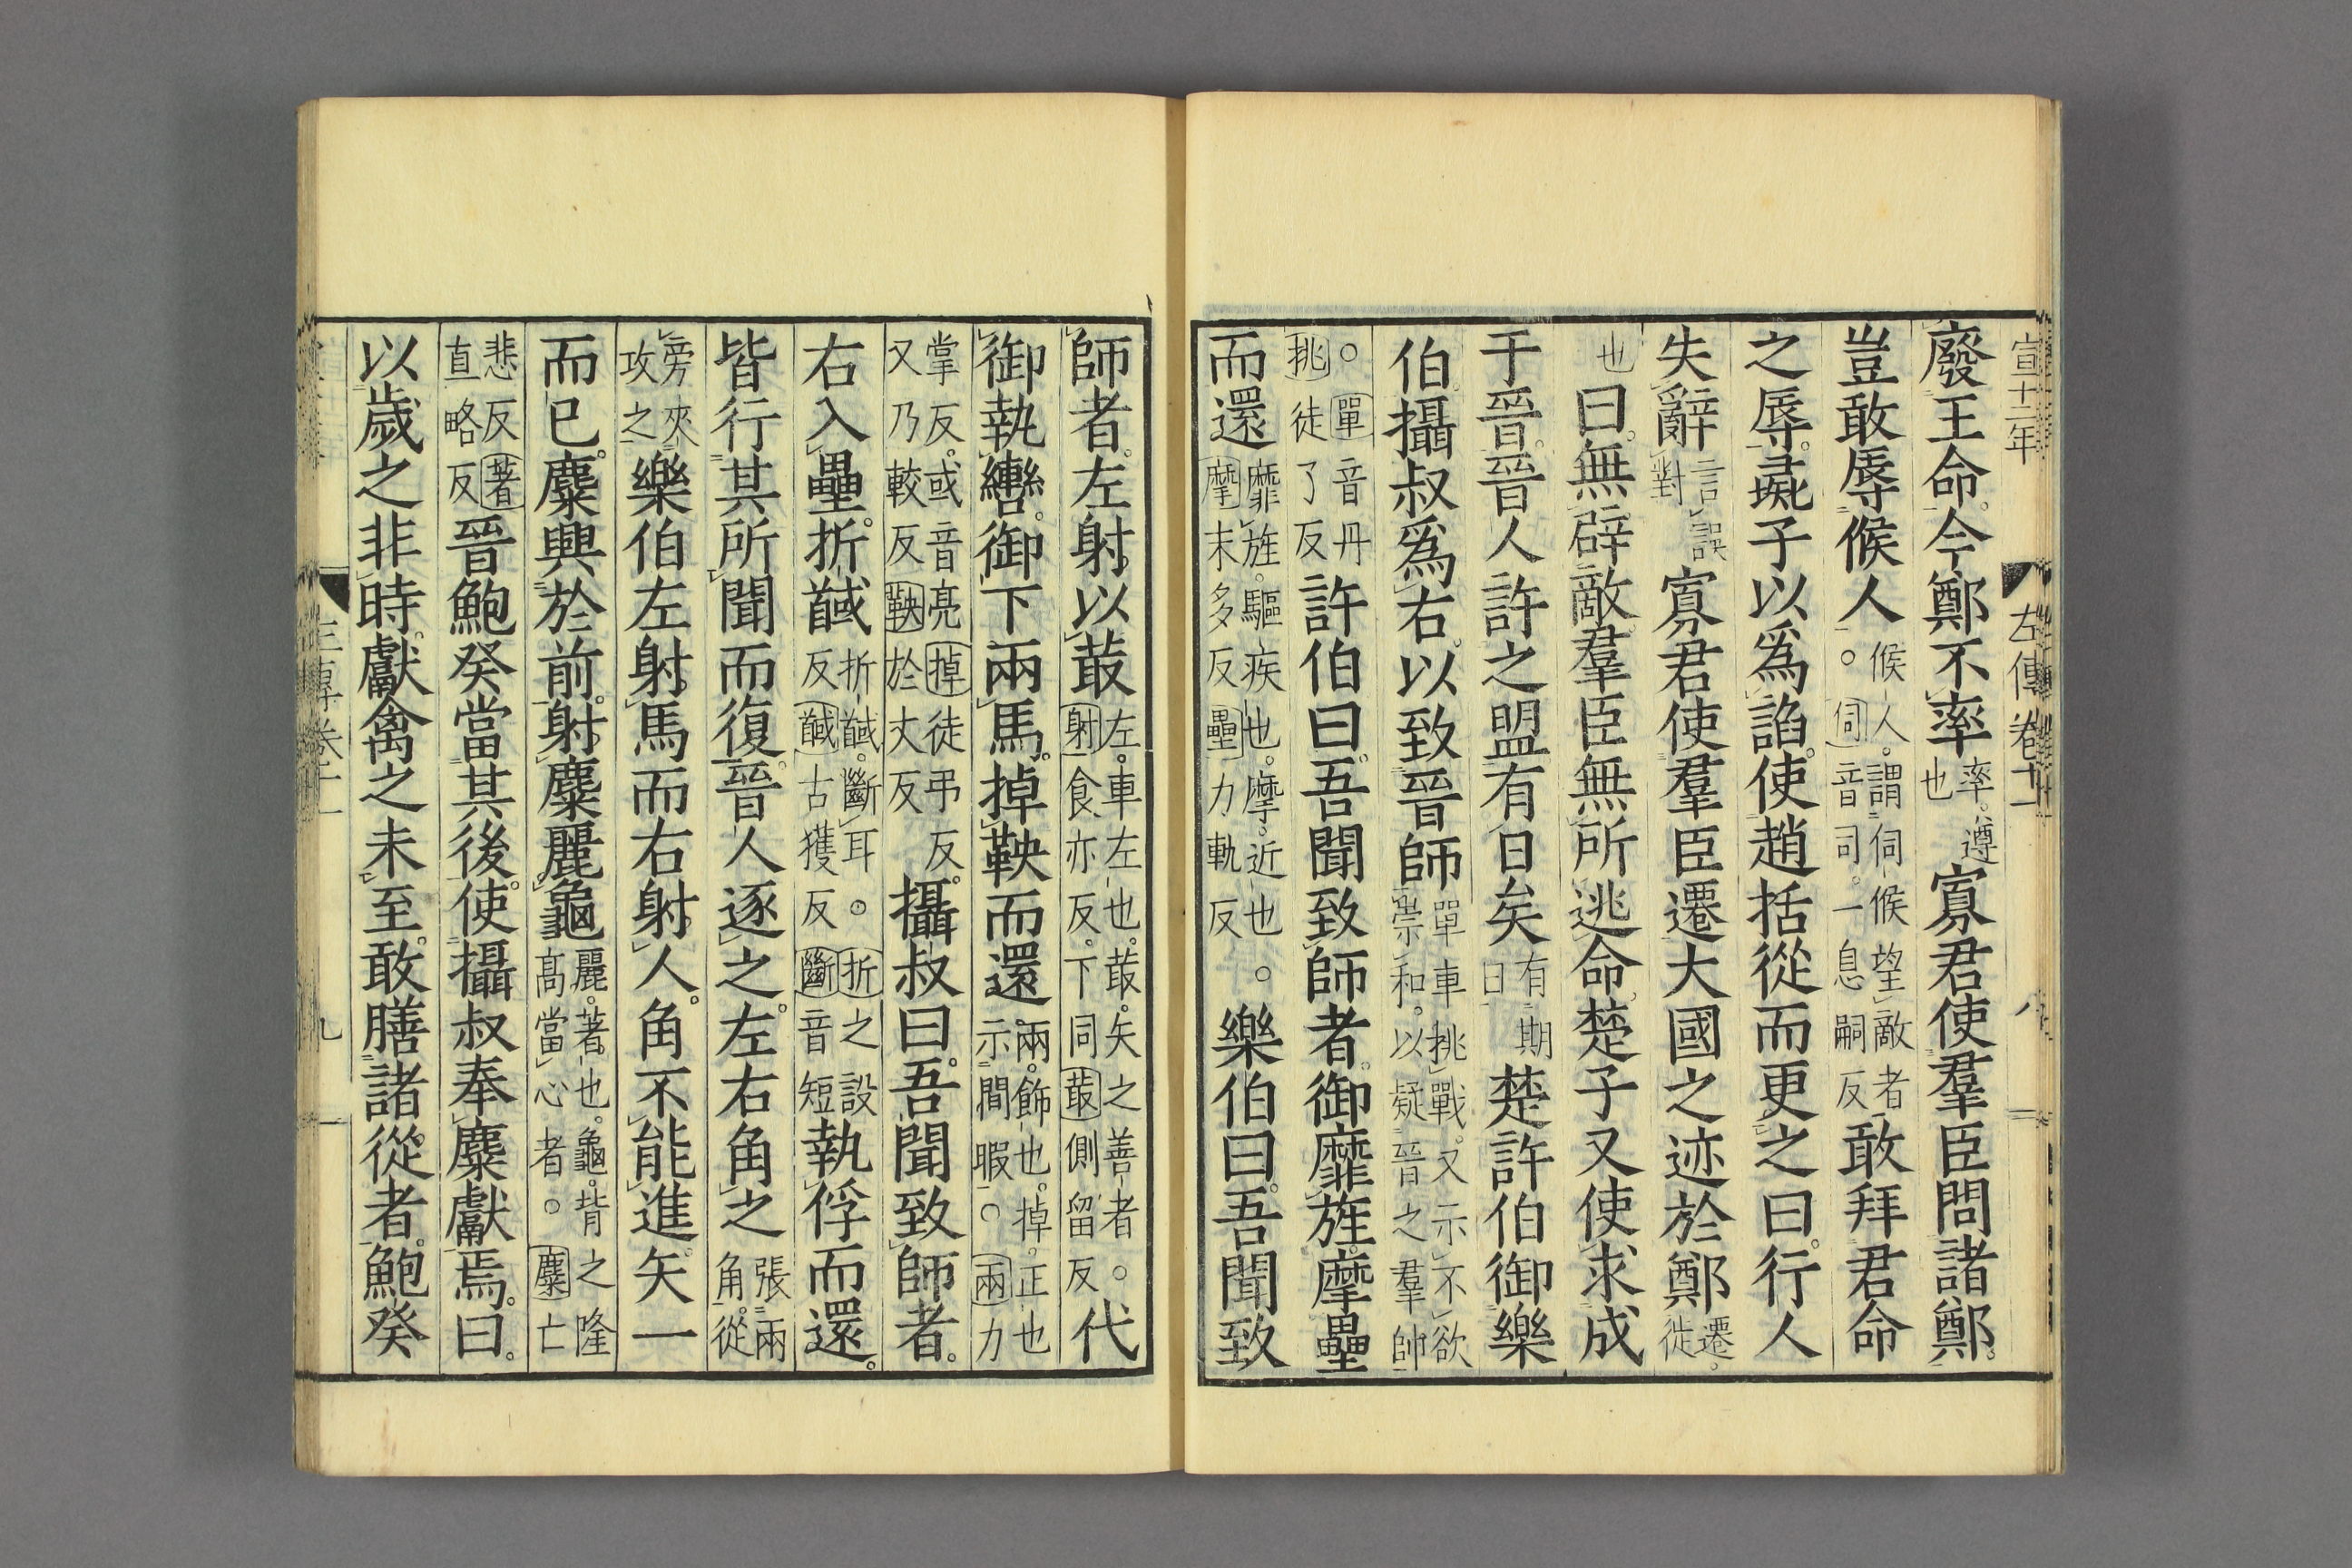 宣十二年 左傳卷十一 八
廢王命今鄭不率率遵也寡君使羣臣問諸鄭
豈敢辱候人候人謂伺候望敵者○伺音司一息嗣反敢拜君命
之辱彘子以爲諂使趙括從而更之曰行人
失辭言誤對寡君使羣臣遷大國之迹於鄭遷徙
也曰無辟敵羣臣無所逃命楚子又使求成
于晉晉人許之盟有日矣有期日楚許伯御樂
伯攝叔爲右以致晉師單車挑戰又示不欲崇和以疑晉之羣帥
○單音丹挑徒了反許伯曰吾聞致師者御靡旌摩壘
而還靡旌驅疾也摩近也○摩末多反壘力軌反樂伯曰吾聞致
師者左射以菆左車左也菆矢之善者○射食亦反下同菆側留反代
御執轡御下兩馬掉鞅而還兩飾也掉正也示閒暇○兩力
掌反或音亮掉徒弔反又乃較反鞅於丈反攝叔曰吾聞致師者
右入壘折馘折馘斷耳○折之設反馘古獲反斷音短執俘而還
皆行其所聞而復晉人逐之左右角之張兩角從
旁夾攻之樂伯左射馬而右射人角不能進矢一
而已麋興於前射麋麗龜麗著也龜背之隆高當心者○麋亡
悲反著直略反晉鮑癸當其後使攝叔奉麋獻焉曰
以歲之非時獻禽之未至敢膳諸從者鮑癸
左傳卷十一 九